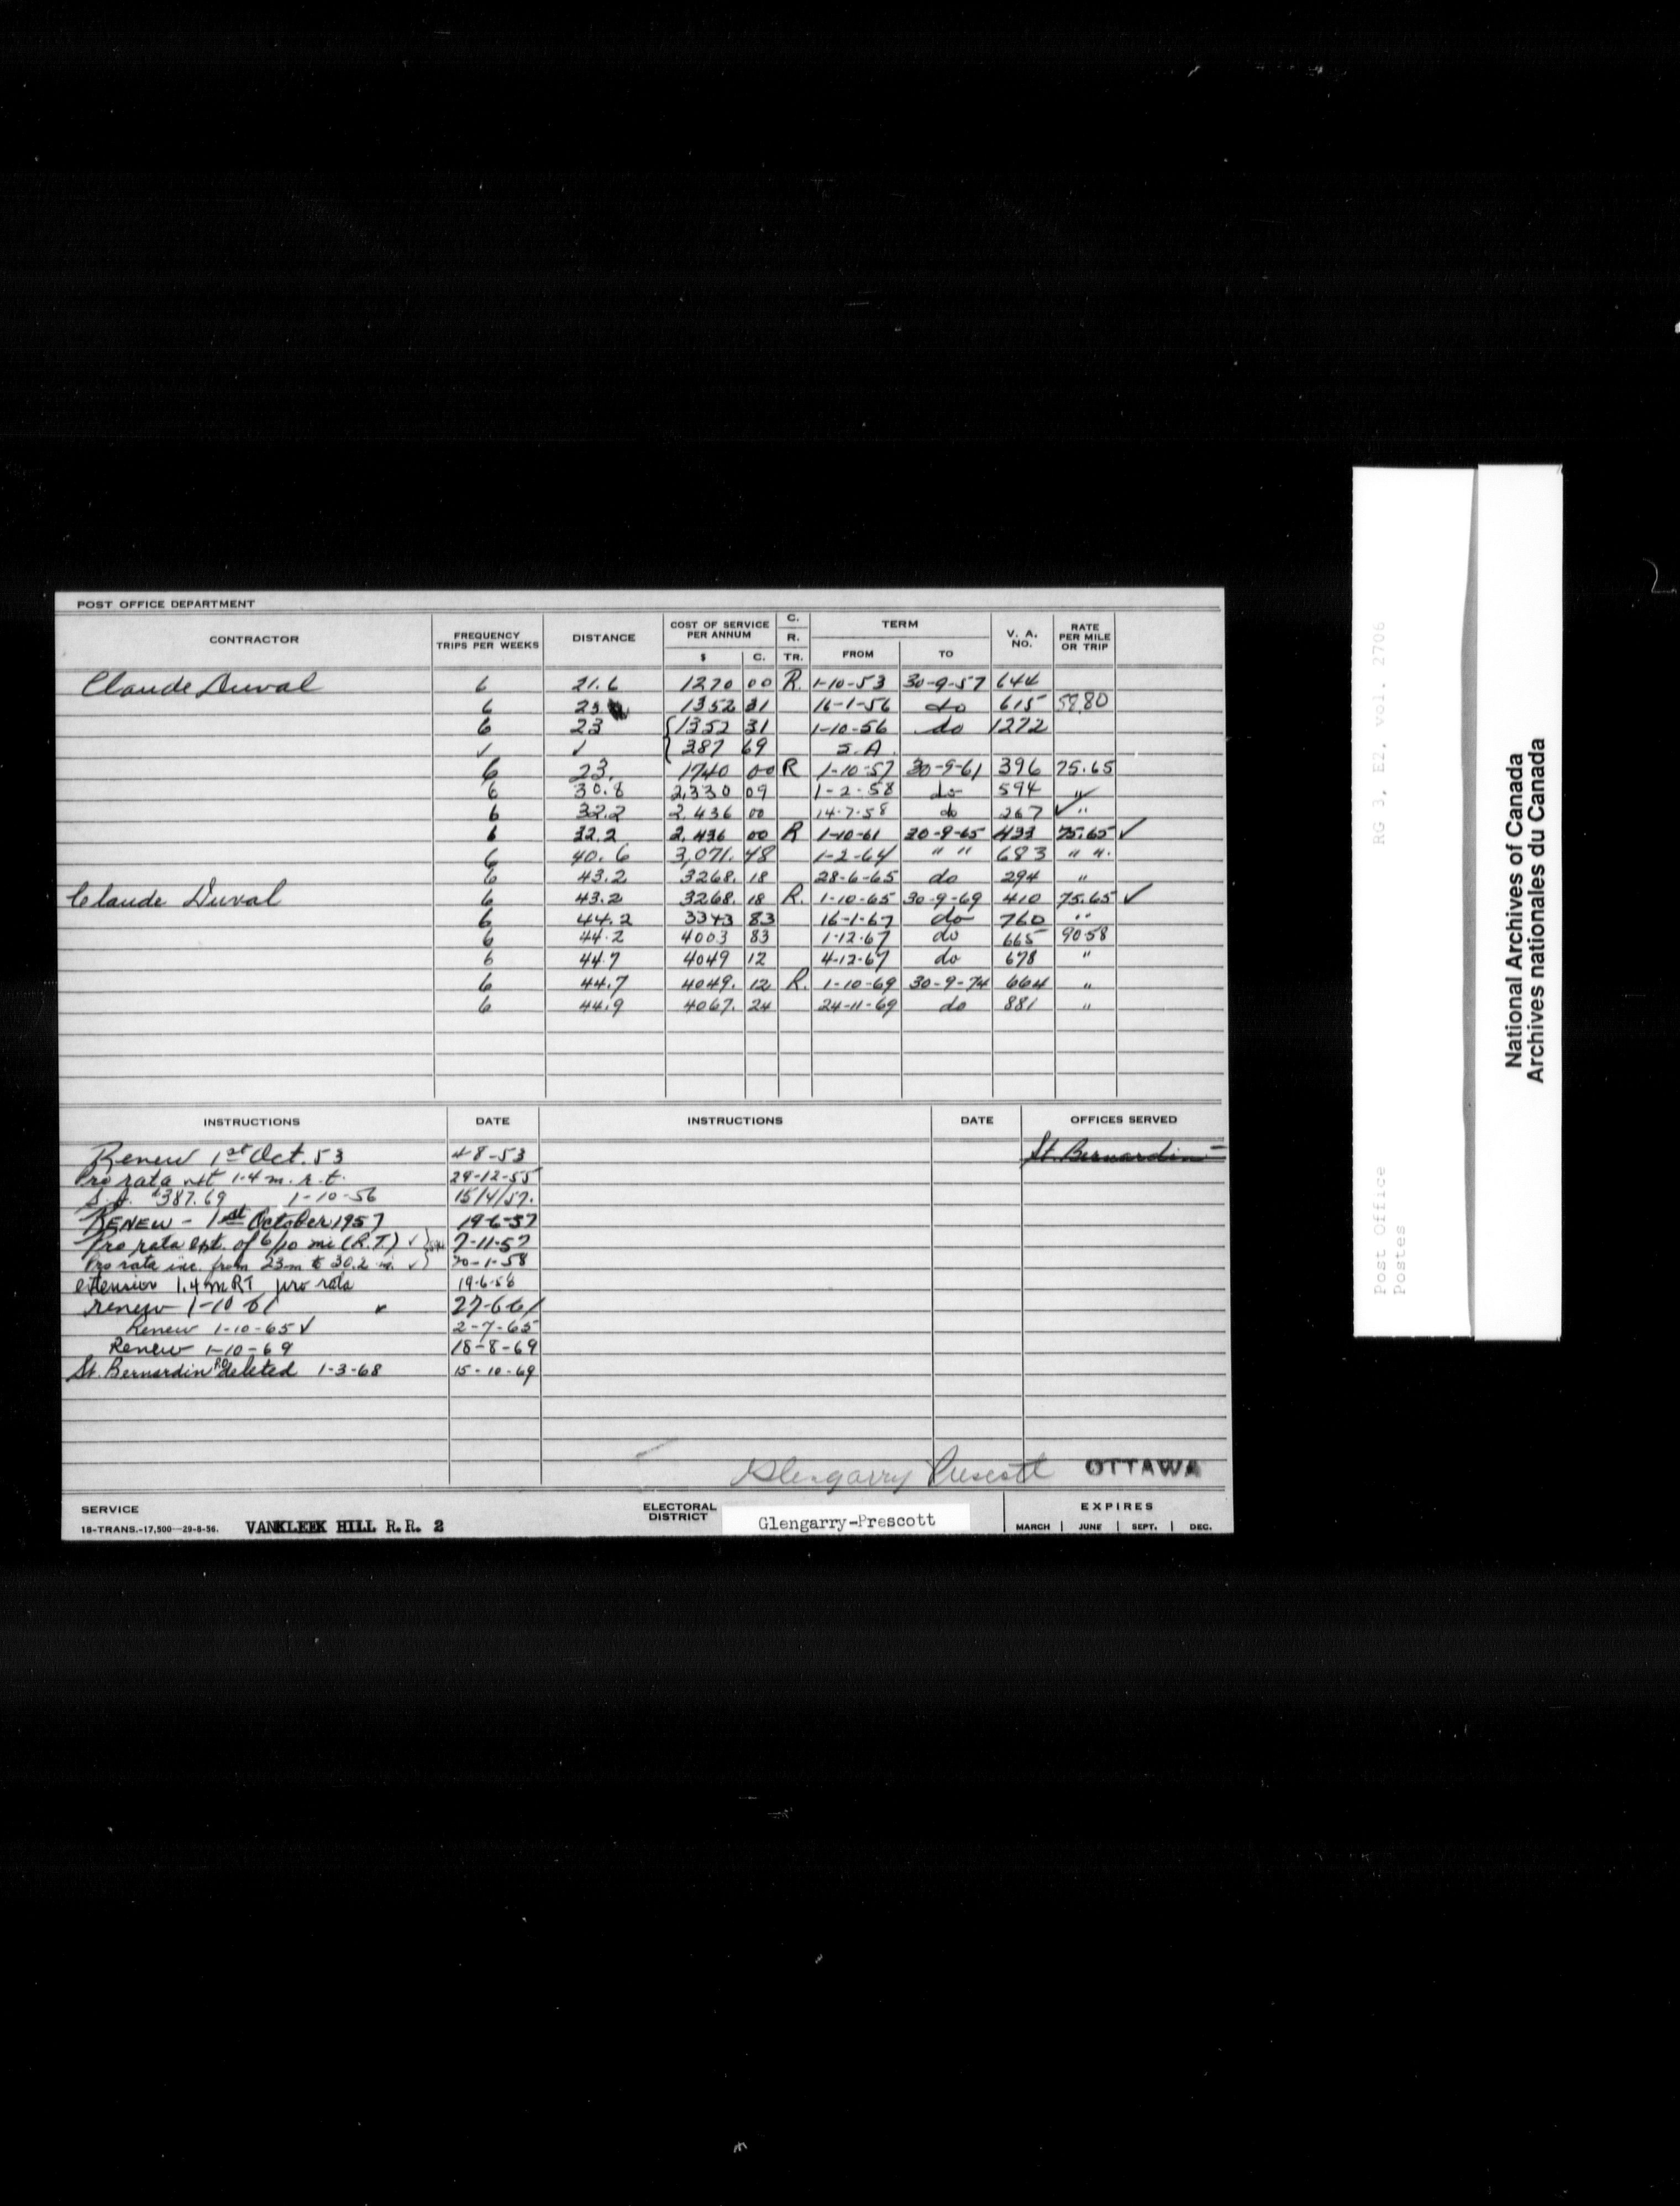 POST OFFICE DEPARTMENT
CONTRACTOR FREQUENCY TRIPS PER WEEKS DISTANCE COST OF SERVICE PER ANNUM $ C. C. R. TR. TERM FROM TO V. A. NO. RATE PER MILE OR TRIP
Claude Duval 6 21.6 1270 00 R. 1-10-53 30-9-57 644
6 23 1352 31 16-1-56 do 615 58.80
6 23 1352 31 1-10-56 do 1272
✓ ✓ 387 69 S.A.
6 23. 1740 00 R 1-10-57 30-9-61 396 75.65
6 30.8 2,330 09 1-2-58 do 594 "
6 32.2 2,436 00 14-7-58 do 267 ✓ "
6 32.2 2,436 00 R 1-10-61 30-9-65 433 75.65 ✓
6 40.6 3,071. 48 1-2-64 " " 683 " "
6 43.2 3268. 18 28-6-65 do 294 "
Claude Duval 6 43.2 3268. 18 R. 1-10-65 30-9-69 410 75.65 ✓
6 44.2 3343 83 16-1-67 do 760 "
6 44.2 4003 83 1-12-67 do 665 90.58
6 44.7 4049 12 4-12-67 do 678 "
6 44.7 4049. 12 R. 1-10-69 30-9-74 664 "
6 44.9 4067. 24 24-11-69 do 881 "
INSTRUCTIONS DATE INSTRUCTIONS DATE OFFICES SERVED
Renew 1st Oct. 53 4-8-53 St. Bernardin
Pro rata ext 1.4 m. r. t. 29-12-55
S.A. $387.69 1-10-56 15/4/57.
RENEW - 1st October 1957 19-6-57
Pro rata ext. of 6/10 mi (R.T.) ✓ 7-11-57
Pro rata inc. from 23m to 30.2 m. ✓ 30-1-58
extension 1.4 m RT pro rata 19-6-58
renew 1-10-61 ✓ 27-6-61
Renew 1-10-65 ✓ 2-7-65
Renew 1-10-69 18-8-69
St. Bernardin PO deleted 1-3-68 15-10-69
Glengarry Prescott OTTAWA
SERVICE
18-TRANS.-17,500-29-8-56. VANKLEEK HILL R.R. 2
ELECTORAL DISTRICT Glengarry-Prescott
EXPIRES
MARCH | JUNE | SEPT. | DEC.
RG 3, E2, vol. 2706
Post Office
Postes
National Archives of Canada
Archives nationales du Canada